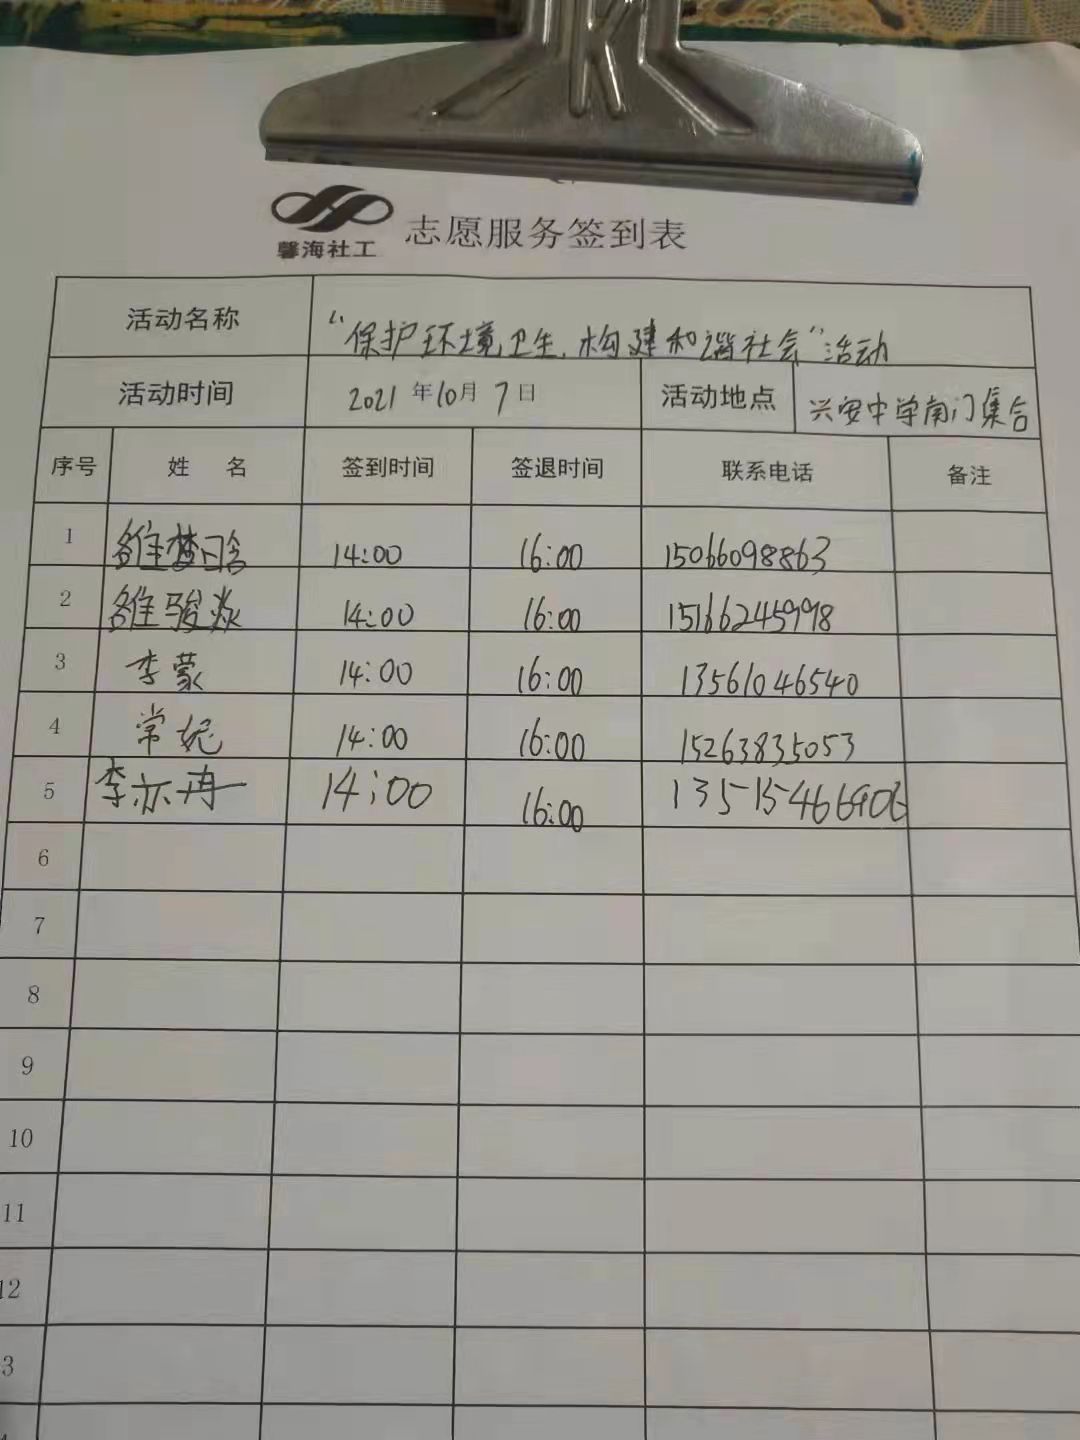 馨海社工 志愿服务签到表
活动名称 “保护环境卫生,构建和谐社会”活动
活动时间 2021年10月7日 活动地点 兴安中学南门集合
序号 姓 名 签到时间 签退时间 联系电话 备注
1 14:00 16:00 15066098863
2 14:00 16:00 15166245998
3 李蒙 14:00 16:00 13561046540
4 常妮 14:00 16:00 15263835053
5 李亦冉 14:00 16:00
6
7
8
9
10
11
12
3